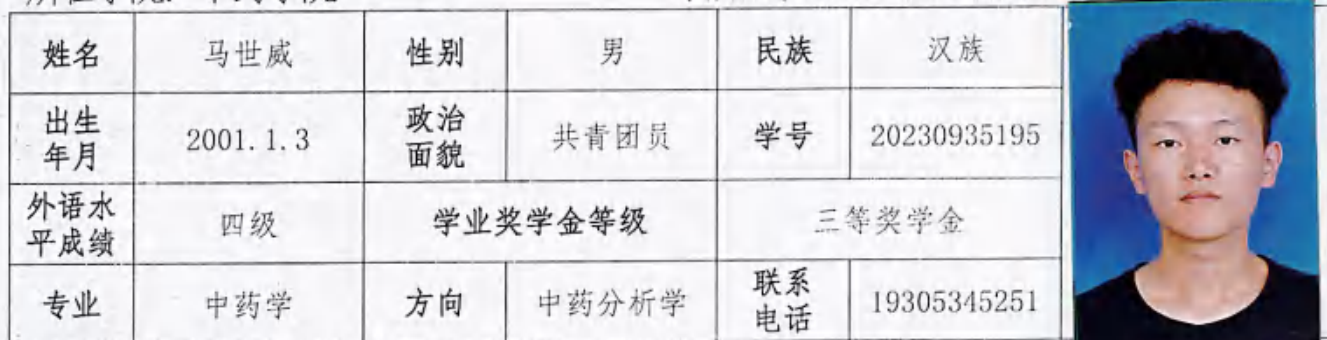 姓名 马世威 性别 男 民族 汉族
出生年月 2001.1.3 政治面貌 共青团员 学号 20230935195
外语水平成绩 四级 学业奖学金等级 三等奖学金
专业 中药学 方向 中药分析学 联系电话 19305345251